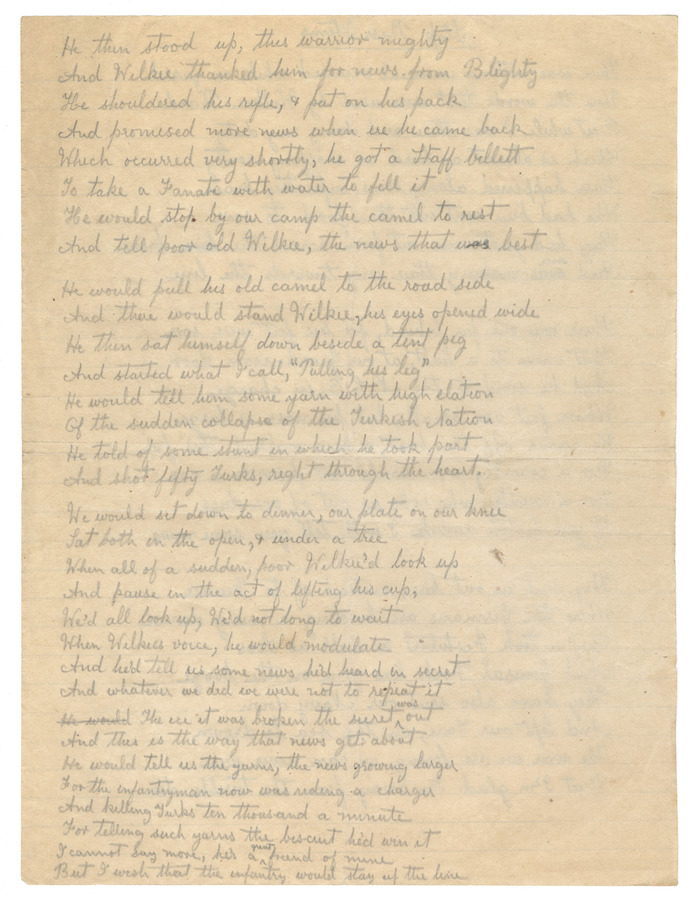 He then stood up, this warrior mighty
And Wilkie thanked him for news from Blighty
He shouldered his rifle, & put on his pack
And promised more news when ere he came back
Which occurred very shortly, he got a Staff billett
To take a Fanati with water to fill it
He would stop by our camp the camel to rest
And tell poor old Wilkie, the news that was best
He would pull his old camel to the road side
And there would stand Wilkie, his eyes opened wide
He then sat himself down beside a tent peg
And started what I call, "Pulling his leg"
He would tell him some yarn with high elation
Of the sudden collapse of the Turkish Nation
He told of some stunt in which he took part
And shot fifty Turks, right through the heart.
We would set down to dinner, our plate on our knee
Sat both in the open, & under a tree
When all of a sudden, poor Wilkie'd look up
And pause in the act of lifting his cup,
We'd all look up, We'd not long to wait
When Wilkies voice, he would modulate
And he'd tell us some news he'd heard in secret
And whatever we did we were not to repeat it
He would The ice it was broken the secret was out
And this is the way that news gets about
He would tell us the yarns, the news growing larger
For the infantryman now was riding a charger
And killing Turks ten thousand a minute
For telling such yarns the biscuit he'd win it
I cannot say more, he's a great friend of mine
But I wish that the infantry would stay up the line